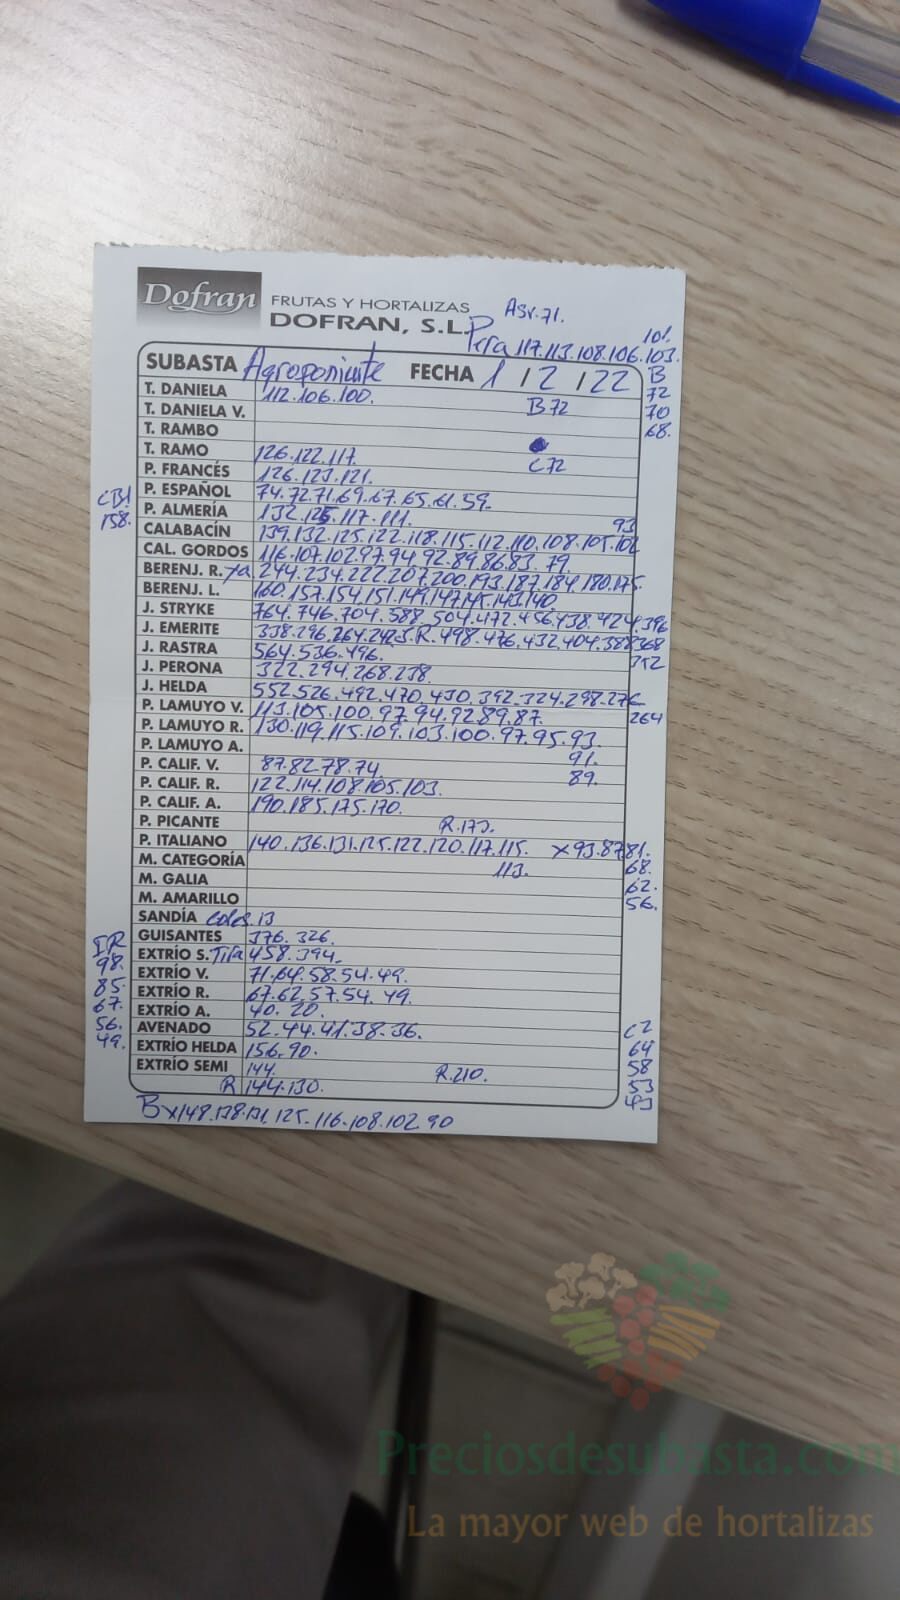 Dofran FRUTAS Y HORTALIZAS
DOFRAN, S.L.
Asv. 71.
Pera 117.113.108.106.103.
101.
B
72
70
68.
SUBASTA Agroponiente FECHA 1 / 2 / 22
T. DANIELA 112.106.100.
T. DANIELA V. B72
T. RAMBO
T. RAMO 126.122.117. C72
P. FRANCÉS 126.123.121.
P. ESPAÑOL 74.72.71.69.67.65.61.59.
CB1
158.
P. ALMERÍA 132.125.117.111. 93
CALABACÍN 139.132.125.122.118.115.112.110.108.105.102
CAL. GORDOS 116.107.102.97.94.92.89.86.83.79
BERENJ. R. ya 244.234.222.207.200.193.187.184.180.175.
BERENJ. L. 160.157.154.151.149.147.145.143.140.
J. STRYKE 764.746.704.588.504.472.456.438.424.396
J. EMERITE 338.296.264.242 S.R. 498.476.432.404.388 368
J. RASTRA 564.536.496. 352
J. PERONA 322.294.268.238.
J. HELDA 552.526.492.470.430.392.324.298.276
264
P. LAMUYO V. 113.105.100.97.94.92.89.87.
P. LAMUYO R. 130.119.115.109.103.100.97.95.93.
91.
89.
P. LAMUYO A.
P. CALIF. V. 87.82.78.74.
P. CALIF. R. 122.114.108.105.103.
P. CALIF. A. 190.185.175.170.
P. PICANTE R.173.
P. ITALIANO 140.136.131.125.122.120.117.115. x93.87.81.
113.
68.
62.
56.
M. CATEGORÍA
M. GALIA
M. AMARILLO
SANDÍA coles.13
GUISANTES 376.326.
EXTRÍO S. Tira 458.394.
IR
98.
85.
67.
56.
49.
EXTRÍO V. 71.64.58.54.49.
EXTRÍO R. 67.62.57.54.49.
EXTRÍO A. 40.20.
AVENADO 52.44.41.38.36.
C2
64
58
53
43
EXTRÍO HELDA 156.90.
EXTRÍO SEMI 144. R.210.
R 144.130.
Bx148.138.131.125.116.108.102 90
Preciosdesubasta.com
La mayor web de hortalizas